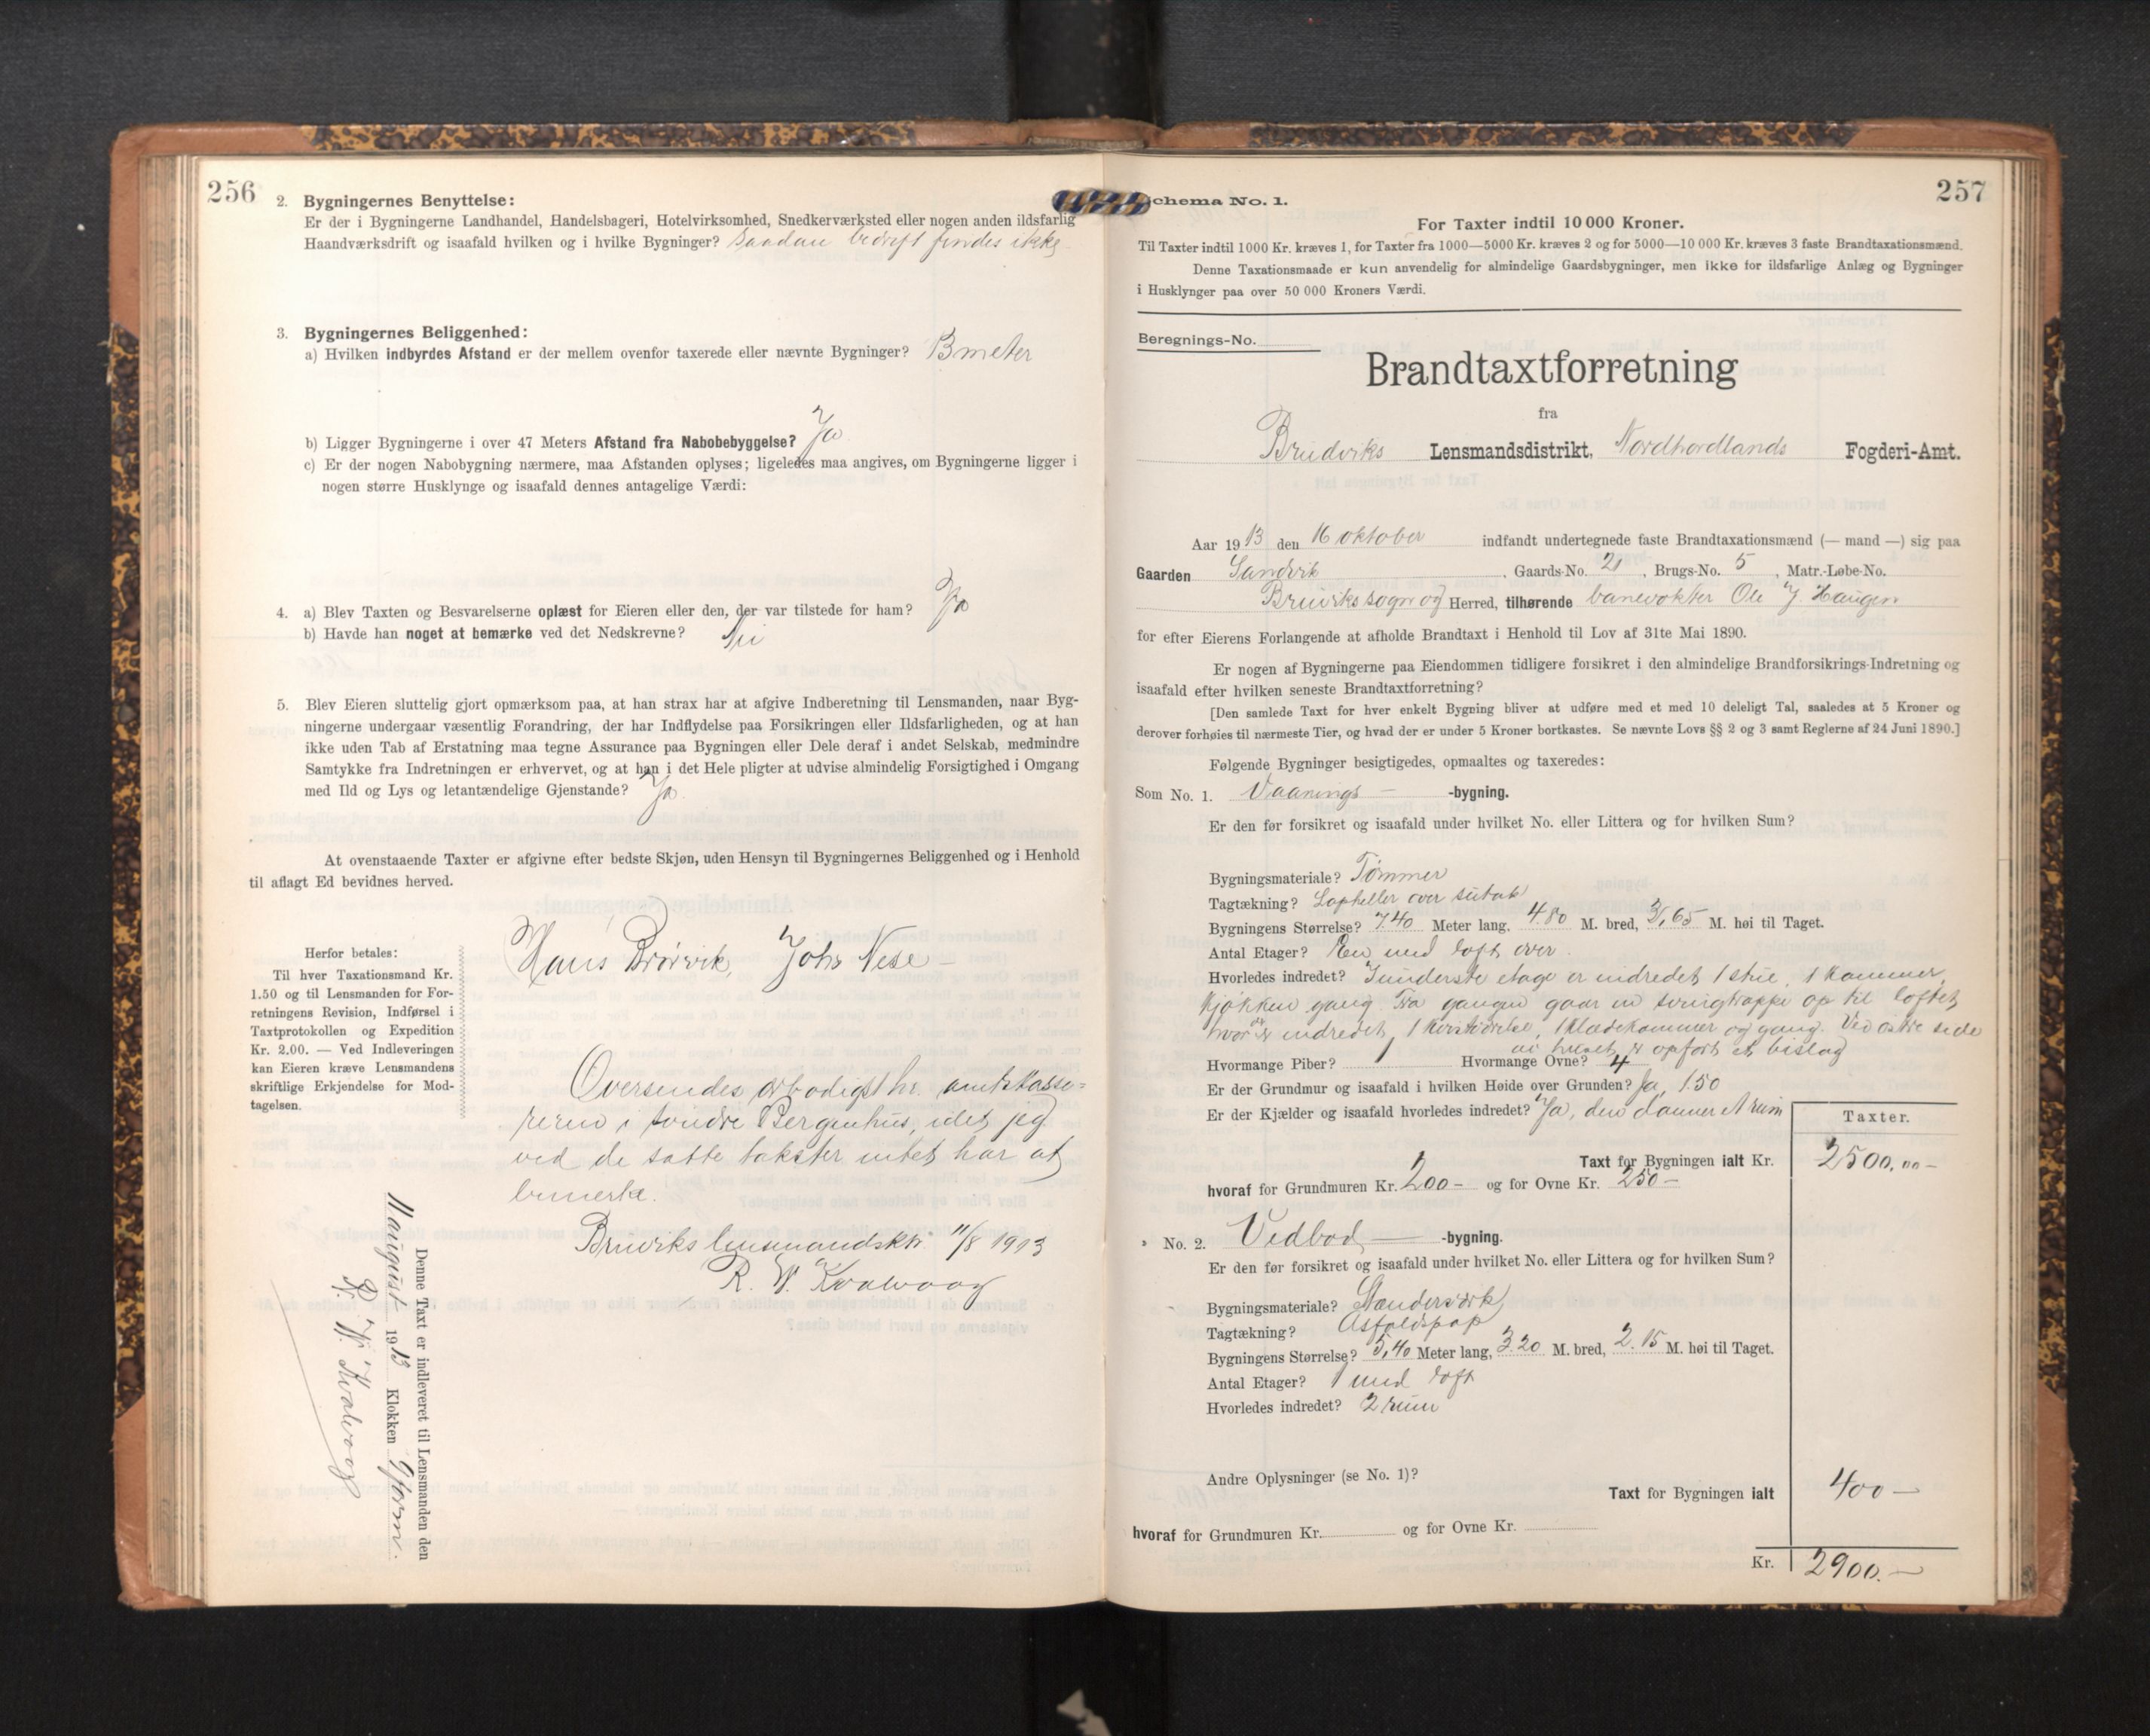 256
2. Bygningernes Benyttelse:
Er der i Bygningerne Landhandel, Handelsbageri, Hotelvirksomhed, Snedkerværksted eller nogen anden ildsfarlig
Haandværksdrift og isaafald hvilken og i hvilke Bygninger? Saadan bedrift findes ikke
3. Bygningernes Beliggenhed:
a) Hvilken indbyrdes Afstand er der mellem ovenfor taxerede eller nævnte Bygninger? 13 meter
b) Ligger Bygningerne i over 47 Meters Afstand fra Nabobebyggelse? Ja
c) Er der nogen Nabobygning nærmere, maa Afstanden oplyses; ligeledes maa angives, om Bygningerne ligger i
nogen større Husklynge og isaafald dennes antagelige Værdi:
4. a) Blev Taxten og Besvarelserne oplæst for Eieren eller den, der var tilstede for ham? Ja
b) Havde han noget at bemærke ved det Nedskrevne? Nei
5. Blev Eieren sluttelig gjort opmærksom paa, at han strax har at afgive Indberetning til Lensmanden, naar Byg-
ningerne undergaar væsentlig Forandring, der har Indflydelse paa Forsikringen eller Ildsfarligheden, og at han
ikke uden Tab af Erstatning maa tegne Assurance paa Bygningen eller Dele deraf i andet Selskab, medmindre
Samtykke fra Indretningen er erhvervet, og at han i det Hele pligter at udvise almindelig Forsigtighed i Omgang
med Ild og Lys og letantændelige Gjenstande? Ja.
At ovenstaaende Taxter er afgivne efter bedste Skjøn, uden Hensyn til Bygningernes Beliggenhed og i Henhold
til aflagt Ed bevidnes herved.
Hans Brørvik, Johs Nese
Herfor betales:
Til hver Taxationsmand Kr.
1.50 og til Lensmanden for For-
retningens Revision, Indførsel i
Taxtprotokollen og Expedition
Kr. 2.00. — Ved Indleveringen
kan Eieren kræve Lensmandens
skriftlige Erkjendelse for Mod-
tagelsen.
Oversendes ærbødigst hr. amtskasse-
reren i søndre Bergenhus, idet jeg
ved de satte takster intet har at
bemerke.
Bruviks lensmandsktr. 11/8 1913
R. W. Kvalvaag
Denne Taxt er indleveret til Lensmanden den
11 august 1913 Klokken 9 form.
R. W. Kvalvaag
257
Schema No. 1.
For Taxter indtil 10 000 Kroner.
Til Taxter indtil 1000 Kr. kræves 1, for Taxter fra 1000—5000 Kr. kræves 2 og for 5000—10 000 Kr. kræves 3 faste Brandtaxationsmænd.
Denne Taxationsmaade er kun anvendelig for almindelige Gaardsbygninger, men ikke for ildsfarlige Anlæg og Bygninger
i Husklynger paa over 50 000 Kroners Værdi.
Beregnings-No.
Brandtaxtforretning
fra
Brudviks Lensmandsdistrikt, Nordhordlands Fogderi-Amt.
Aar 1913 den 16 oktober indfandt undertegnede faste Brandtaxationsmænd (— mand —) sig paa
Gaarden Sandvik, Gaards-No. 21, Brugs-No. 5, Matr.-Løbe-No.
Bruviks sogn og Herred, tilhørende banevokter Ole J. Haugen
for efter Eierens Forlangende at afholde Brandtaxt i Henhold til Lov af 31te Mai 1890.
Er nogen af Bygningerne paa Eiendommen tidligere forsikret i den almindelige Brandforsikrings-Indretning og
isaafald efter hvilken seneste Brandtaxtforretning?
[Den samlede Taxt for hver enkelt Bygning bliver at udføre med et med 10 deleligt Tal, saaledes at 5 Kroner og
derover forhøies til nærmeste Tier, og hvad der er under 5 Kroner bortkastes. Se nævnte Lovs §§ 2 og 3 samt Reglerne af 24 Juni 1890.]
Følgende Bygninger besigtigedes, opmaaltes og taxeredes:
Som No. 1. Vaanings — -bygning.
Er den før forsikret og isaafald under hvilket No. eller Littera og for hvilken Sum?
Bygningsmateriale? Tømmer
Tagtækning? Lapheller over sutak
Bygningens Størrelse? 7.40 Meter lang, 4.80 M. bred, 3,65 M. høi til Taget.
Antal Etager? En med loft over.
Hvorledes indredet? I underste etage er indredet 1 stue, 1 kammer,
kjøkken gang. Fra gangen gaar en svingtrappe op til loftet,
hvor der er indredet, 1 korsværelse, 1 klædekammer og gang. Ved østre side
av huset er opført et bislag
Hvormange Piber? 1 Hvormange Ovne? 4
Er der Grundmur og isaafald i hvilken Høide over Grunden? Ja, 1.50
Er der Kjælder og isaafald hvorledes indredet? Ja, den danner et rum
Taxter.
Taxt for Bygningen ialt Kr. 2500,00 —
hvoraf for Grundmuren Kr. 200 — og for Ovne Kr. 250 —
" No. 2. Vedbod — -bygning.
Er den før forsikret og isaafald under hvilket No. eller Littera og for hvilken Sum?
Bygningsmateriale? Stænderværk
Tagtækning? Asfaldspap
Bygningens Størrelse? 5,40 Meter lang, 3.20 M. bred, 2.15 M. høi til Taget.
Antal Etager? 1 med loft
Hvorledes indredet? 2 rum
Andre Oplysninger (se No. 1)?
Taxt for Bygningen ialt 400 —
hvoraf for Grundmuren Kr. og for Ovne Kr.
Kr. 2900. —